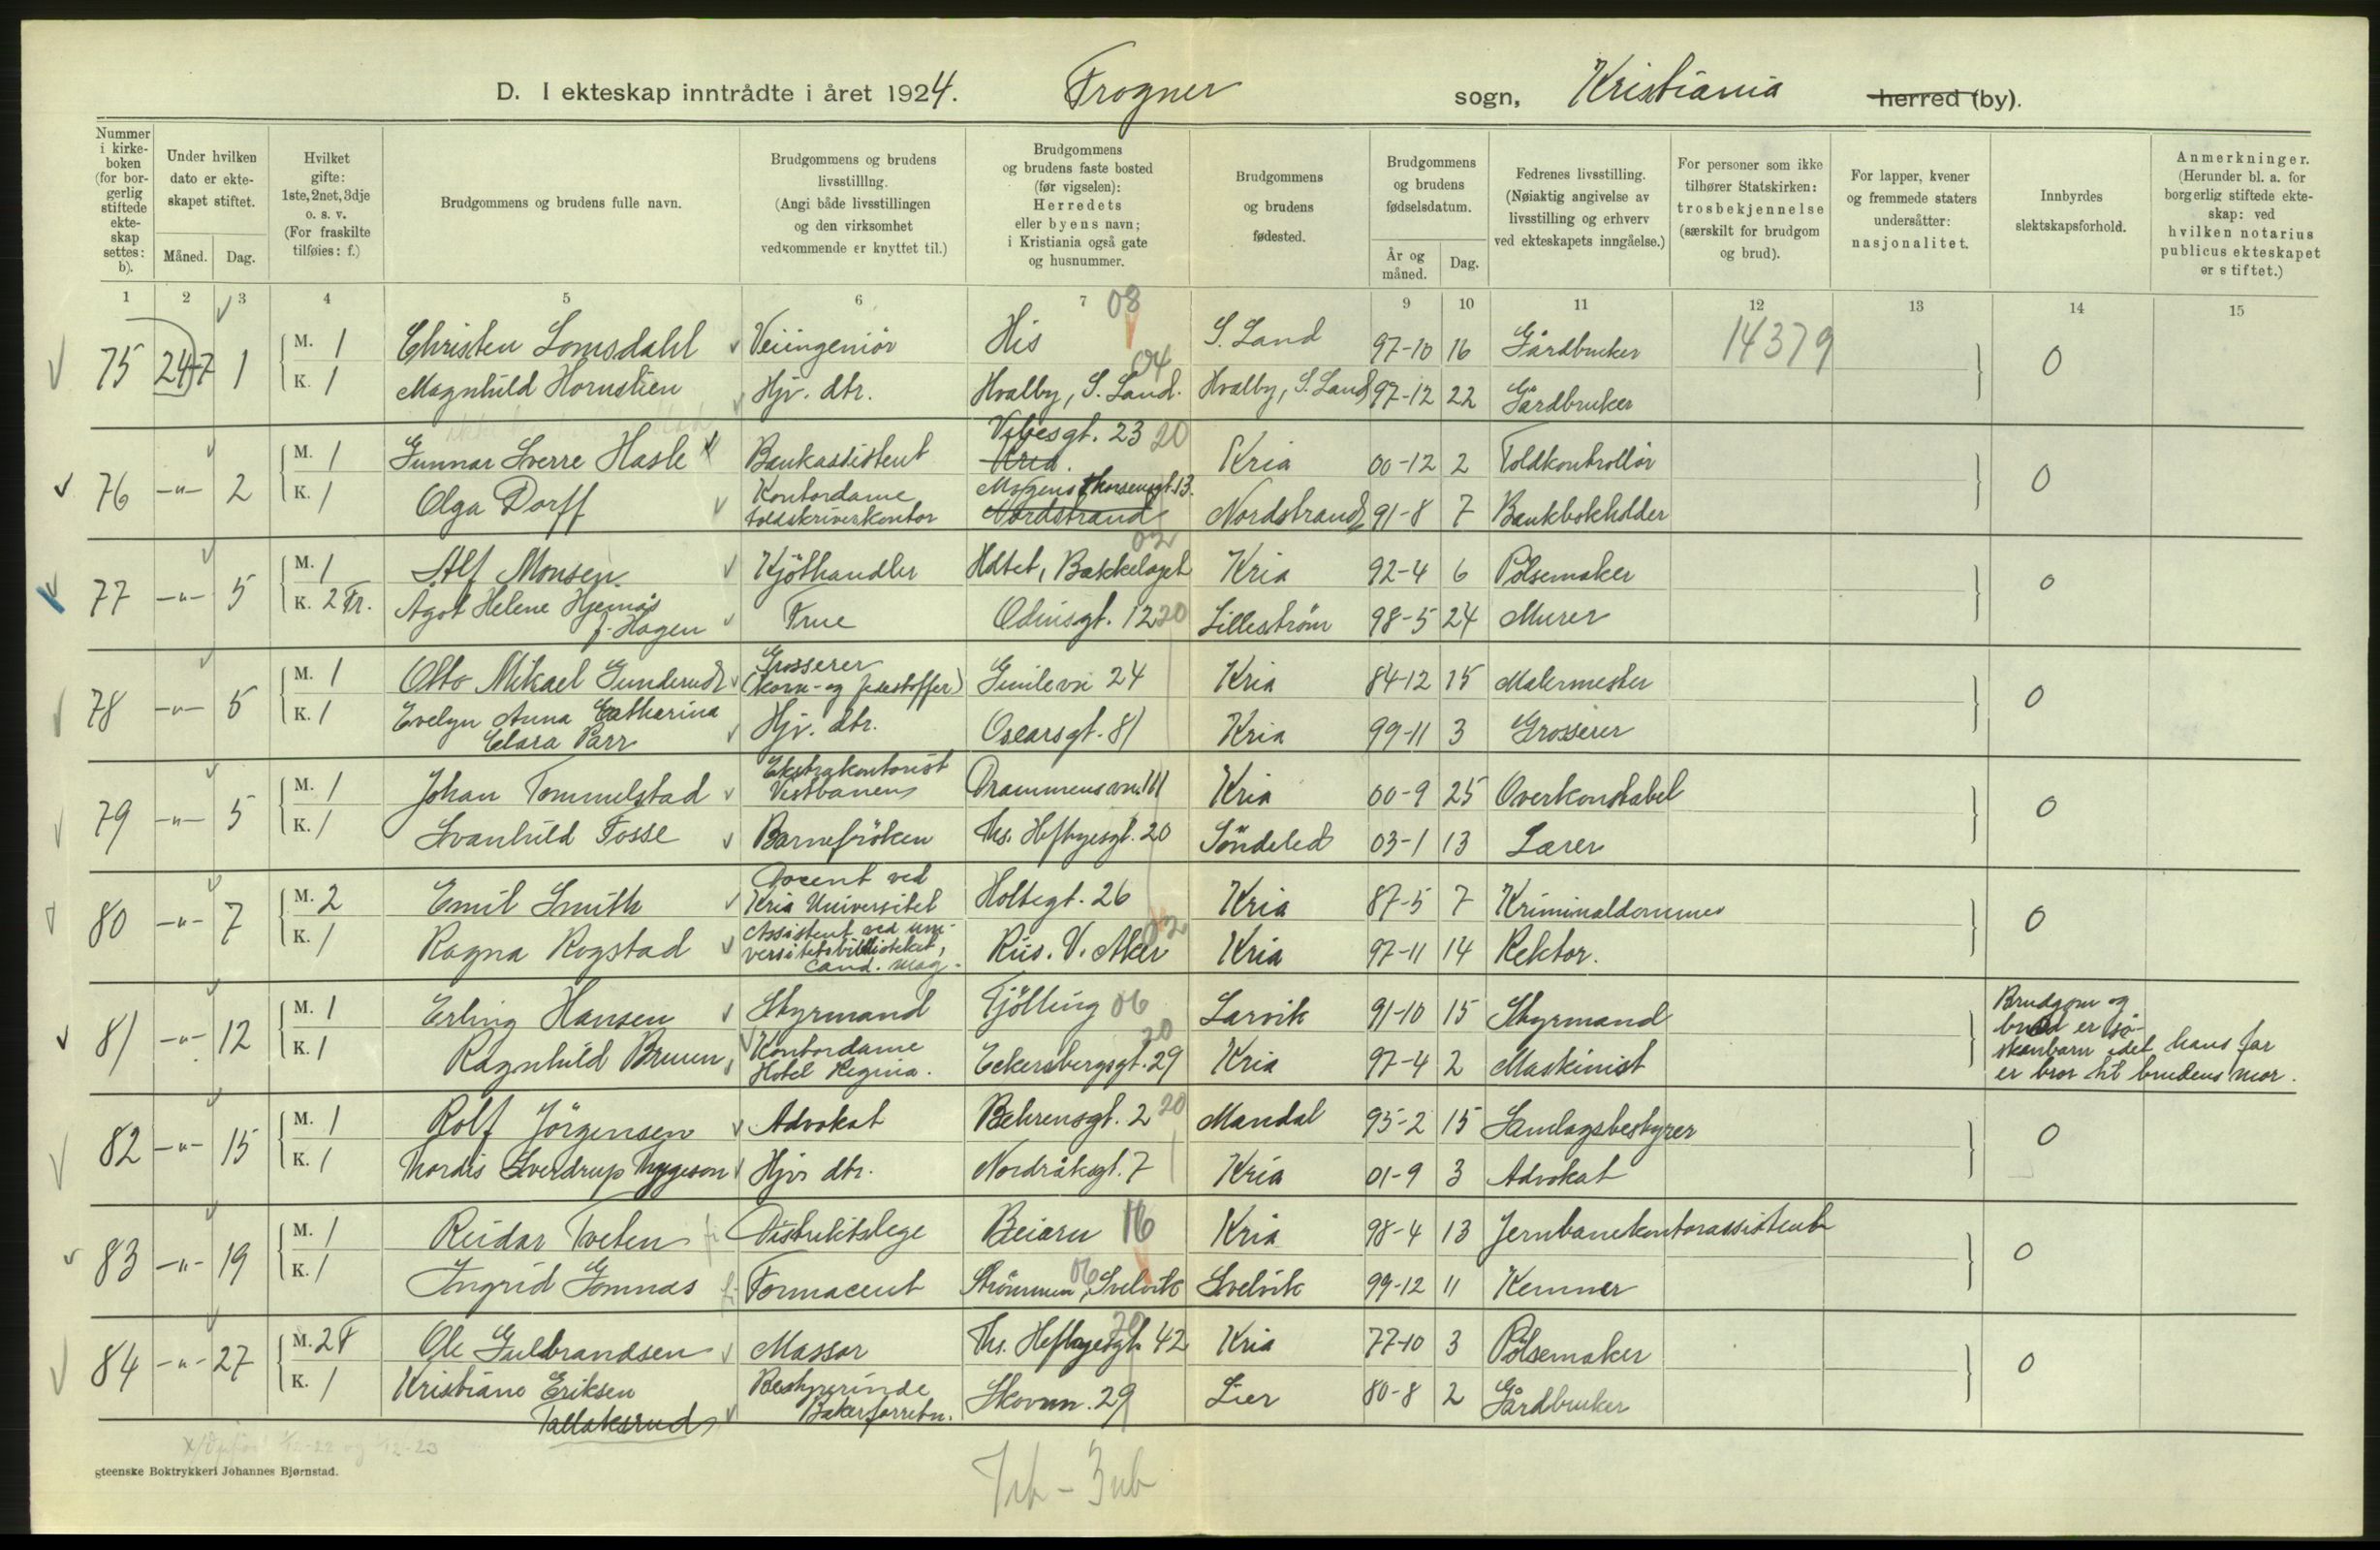 D. I ekteskap inntrådte i året 1924. Frogner sogn, Kristiania herred (by).
Nummer i kirkeboken (for borgerlig stiftede ekteskap settes: b).
Under hvilken dato er ekteskapet stiftet.
Måned. Dag.
Hvilket gifte: 1ste, 2net, 3dje o. s. v. (For fraskilte tilføies: f.)
Brudgommens og brudens fulle navn.
Brudgommens og brudens livsstilllng. (Angi både livsstillingen og den virksomhet vedkommende er knyttet til.)
Brudgommens og brudens faste bosted (før vigselen): Herredets eller byens navn; i Kristiania også gate og husnummer.
Brudgommens og brudens fødested.
Brudgommens og brudens fødselsdatum.
År og måned. Dag.
Fedrenes livsstilling. (Nøiaktig angivelse av livsstilling og erhverv ved ekteskapets inngåelse.)
For personer som ikke tilhører Statskirken: trosbekjennelse (særskilt for brudgom og brud).
For lapper, kvener og fremmede staters undersåtter: nasjonalitet.
Innbyrdes slektskapsforhold.
Anmerkninger. (Herunder bl. a. for borgerlig stiftede ekteskap: ved hvilken notarius publicus ekteskapet er stiftet.)
1 2 3 4 5 6 7 9 10 11 12 13 14 15
08
75 24-7 1 M. 1 Christen Lomsdahl Veiingeniör His S. Land 97-10 16 Gårdbruker 14379 0
04
K. 1 Magnhild Hornslien Hjv. dtr. Hvalby, S. Land. Hvalby, S. Land 97-12 22 Gårdbruker
Vibesgt. 23 20
76 -"- 2 M. 1 Gunnar Sverre Hasle Bankassistent Kria. Kria 00-12 2 Toldkontrollör 0
K. 1 Olga Dorff Kontordame toldskriverkontor Mogens Thorsensgt. 13. Nordstrand Nordstrand 91-8 7 Bankbokholder
02
77 -"- 5 M. 1 Alf Monsen Kjöthandler Holtet, Bækkelaget Kria 92-4 6 Pölsemaker 0
K. 2 Fr. Agot Helene Hjemås f. Hagen Frue Odinsgt. 12 20 Lilleström 98-5 24 Murer
78 -"- 5 M. 1 Otto Mikael Gunderud Grosserer (korn- og forstoffer) 24 Kria 84-12 15 Malermester 0
K. 1 Evelyn Anna Catharina Clara Parr Hjv. dtr. Oscarsgt. 81 Kria 99-11 3 Grosserer
79 -"- 5 M. 1 Johan Tommelstad Ekstrakontorist Vestbanen Drammensvn. 111 Kria 00-9 25 Overkonstabel 0
K. 1 Svanhild Fosse Barnefröken Ths. Heftyesgt. 20 Söndeled 03-1 13 Lærer
80 -"- 7 M. 2 Emil Smith Docent ved Kria Universitet Holtegt. 26 Kria 87-5 7 Kriminaldommer 0
02
K. 1 Ragna Rogstad Assistent ved universitetsbiblioteket, cand. mag. Riis. V. Aker Kria 97-11 14 Rektor.
81 -"- 12 M. 1 Erling Hansen Styrmand Tjölling 06 Larvik 91-10 15 Styrmand Brudgom og brud er söskenbarn idet hans far er bror til brudens mor.
20
K. 1 Ragnhild Bruun, Kontordame Hotel Regina. Eckersbergsgt. 29 Kria 97-4 2 Maskinist
82 -"- 15 M. 1 Rolf Jörgensen Advokat Behrensgt. 2 20 Mandal 95-2 15 Samlagsbestyrer 0
K. 1 Thordis Sverdrup Thygeson Hjv. dtr. Nordråksgt. 7 Kria 01-9 3 Advokat
83 -"- 19 M. 1 Reidar Tveten Distriktslege Beiarn 16 Kria 98-4 13 Jernbanekontorassistent 0
06
K. 1 Ingrid Gomnæs Farmaceut Strömmen, Svelvik Svelvik 99-12 11 Kemner
20
84 -"- 27 M. 2 F Ole Gulbrandsen Massør Ths. Heftyesgt. 42 Kria 77-10 3 Pölsemaker 0
K. 1 Kristiane Eriksen Tallaksrud Bestyrerinde Bakerforretn. Skovvn. 29 Lier 80-8 2 Gårdbruker
steenske Boktrykkeri Johannes Bjørnstad.